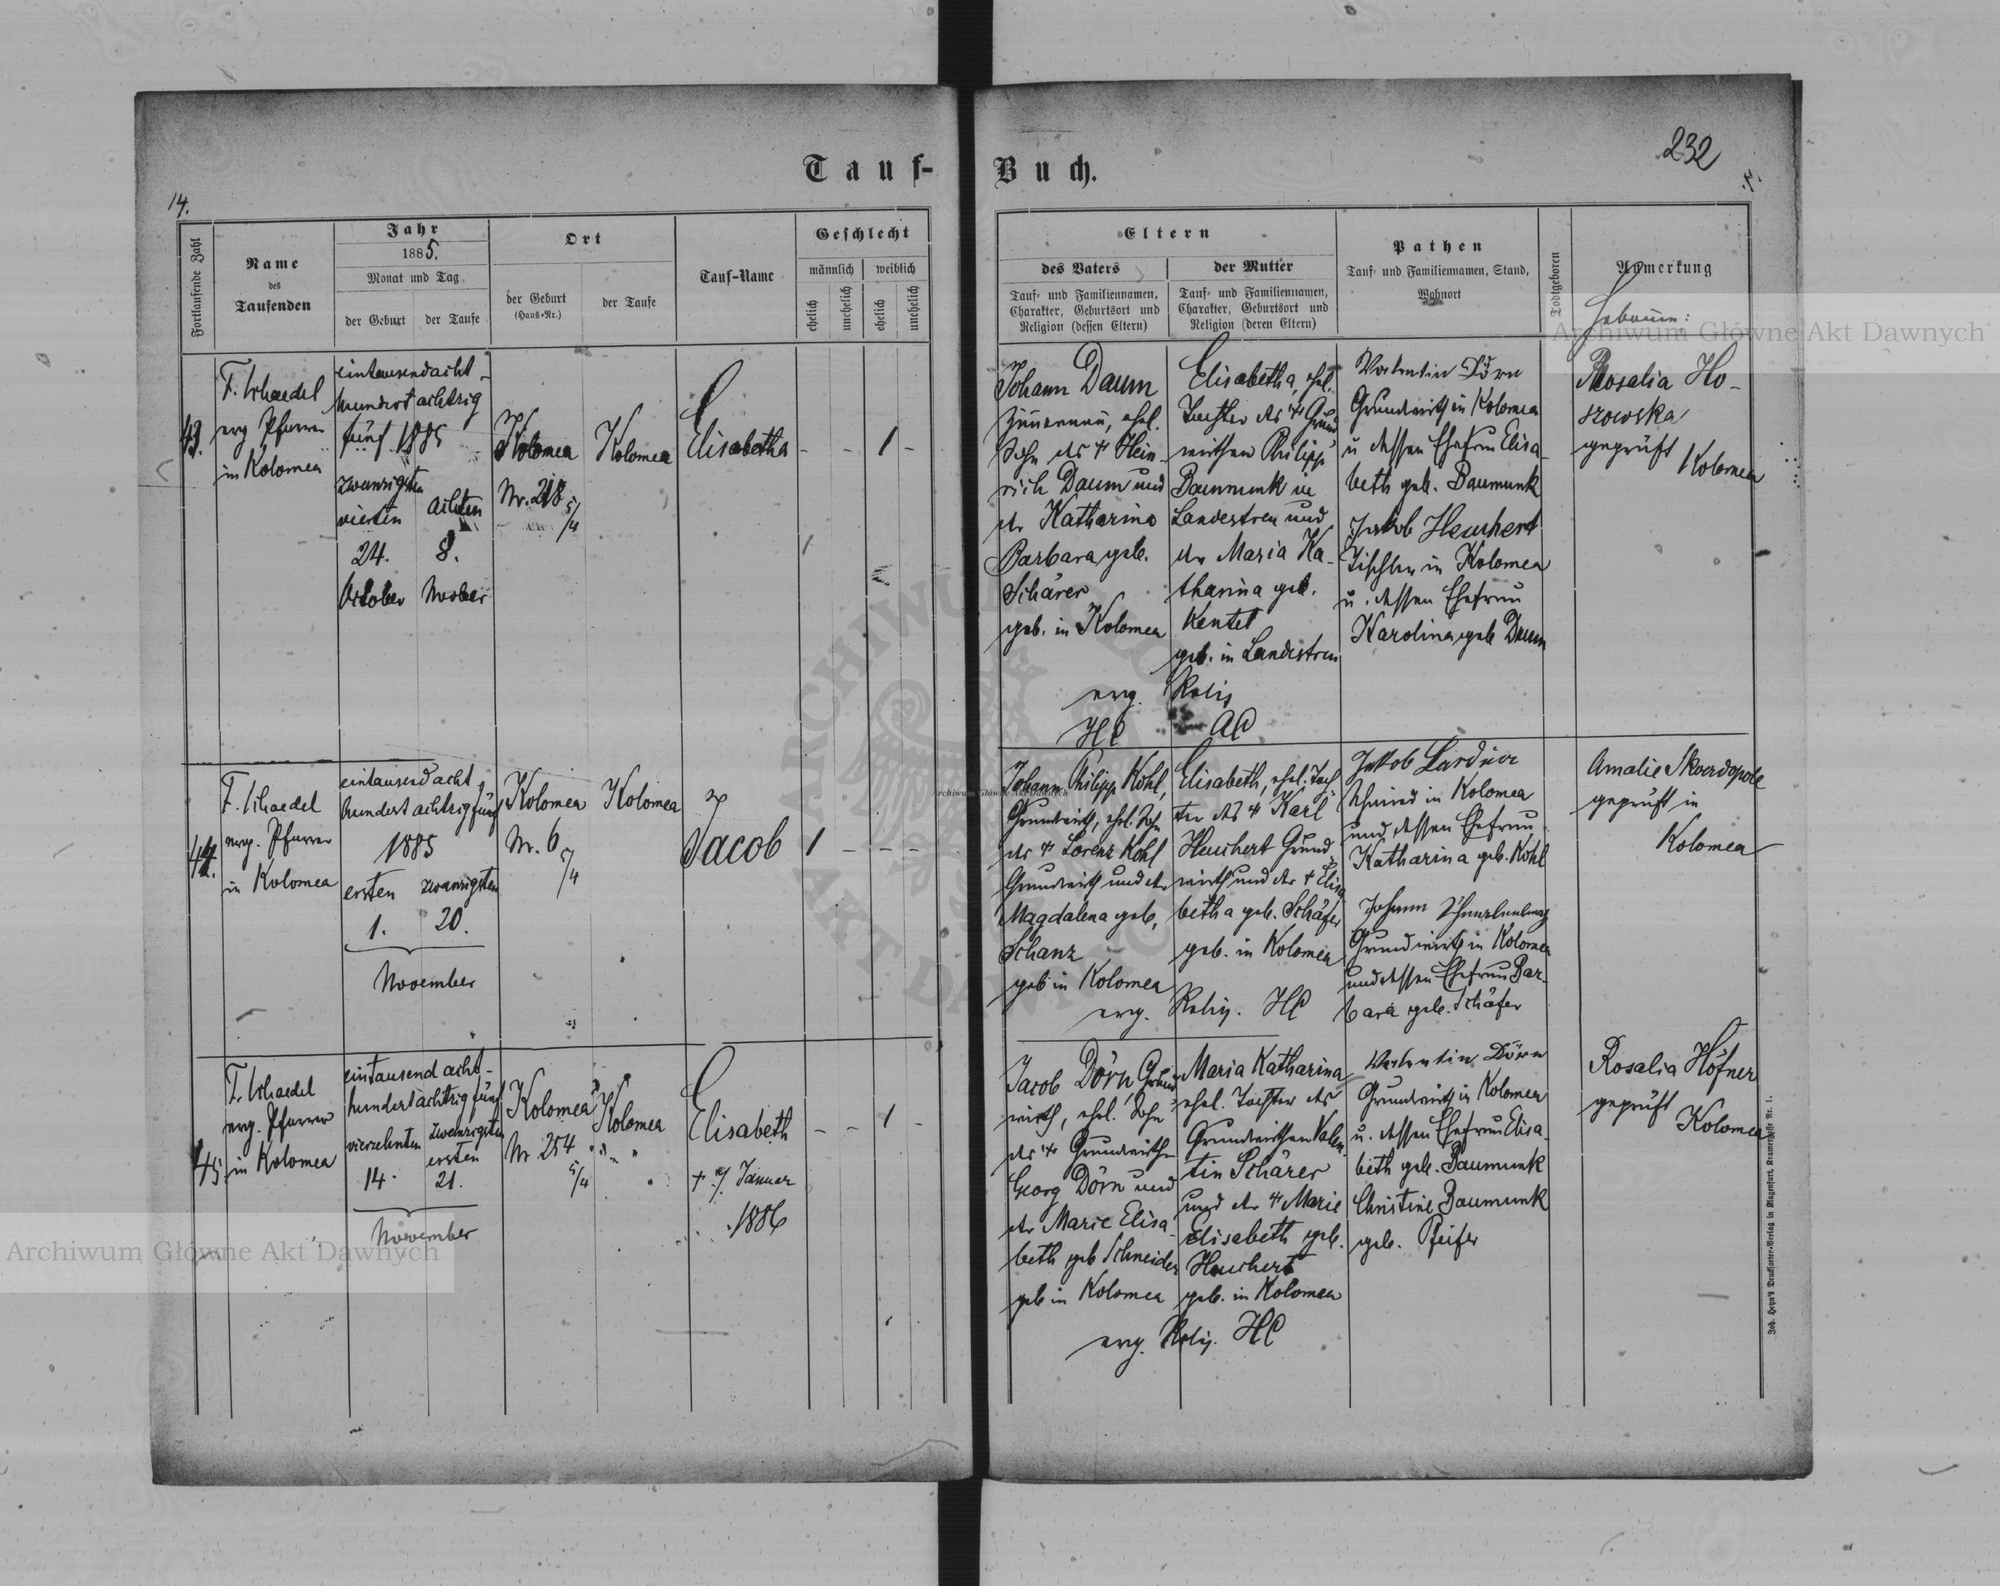 Tauf-Buch.
232
14.
Fortlaufende Zahl
Name
des
Taufenden
Jahr
1885.
Monat und Tag
der Geburt
der Taufe
Ort
der Geburt
(Haus-Nr.)
der Taufe
Tauf-Name
Geschlecht
männlich
weiblich
ehelich
unehelich
ehelich
unehelich
Eltern
des Vaters
Tauf- und Familiennamen,
Charakter, Geburtsort und
Religion (dessen Eltern)
der Mutter
Tauf- und Familiennamen,
Charakter, Geburtsort und
Religion (deren Eltern)
Pathen
Tauf- und Familiennamen, Stand,
Wohnort
Todtgeboren
Anmerkung
43.
F. Schaedel
evg Pfarrer
in Kolomea
eintausendacht-
hundert achtzig
fünf 1885
zwanzigsten
vierten
24.
October
achten
8.
Novber
Kolomea
Nr. 218
5/4
Kolomea
Elisabetha
- - 1 -
Johann Daum
ehel.
Sohn des + Hein-
rich Daum und
der Katharina
Barbara geb.
Schärer
geb. in Kolomea
Elisabetha, ehel.
Tochter des + Grund
wirthen Philipp
Baumunk in
Landestreu und
der Maria Ka-
tharina geb.
Kentel
geb. in Landestreu
evg. Relig
HC AC
Valentin Dörn
Grundwirth in Kolomea
u dessen Ehefrau Elisa-
beth geb. Baumunk
Jakob Heuchert
Tischler in Kolomea
u. dessen Ehefrau
Karolina geb Daum
Hebamme:
Rosalia Ho-
szowska
geprüft
Kolomea
44.
F. Schaedel
evg. Pfarrer
in Kolomea
eintausend acht
hundert achtzig fünf
1885
ersten
1.
zwanzigsten
20.
November
Kolomea
Nr. 6
5/4
Kolomea
Jacob
1 - - -
Johann Philipp Kohl,
Grundwirth, ehel. Sohn
des + Lorenz Kohl
Grundwirth und der
Magdalena geb.
Schanz
geb in Kolomea
Elisabeth, ehel. Toch
ter des + Karl
Heuchert Grund-
wirth und der + Elisa
betha geb. Schäfer
geb. in Kolomea
evg. Relig. HC
Jakob
Schmied in Kolomea
und dessen Ehefrau
Katharina geb. Kohl
Johann
Grundwirth in Kolomea
und dessen Ehefrau Bar-
bara geb. Schäfer
Amalie
geprüft in
Kolomea
45.
F. Schaedel
evg. Pfarrer
in Kolomea
eintausend acht-
hundert achtzig fünf
vierzehnten
14.
zwanzigsten
ersten
21.
November
Kolomea
Nr 254
5/4
Kolomea
Elisabeth
- - 1 -
Januar
1886
Jacob Dörn, Grund
wirth, ehel. Sohn
des + Grundwirthen
Georg Dörn und
der Marie Elisa-
beth geb Schneider
geb in Kolomea
Maria Katharina
ehel. Tochter des
Grundwirthen Valen-
tin Schärer
und der + Marie
Elisabeth geb.
Heuchert
geb. in Kolomea
evg. Relig. HC
Valentin Dörn
Grundwirth in Kolomea
u. dessen Ehefrau Elisa-
beth geb. Baumunk
Christine Baumunk
geb. Pfeifer
Rosalia Höfner
geprüft
Kolomea
Joh. Heyn's Druckforten-Verlag in Klagenfurt, Kramergasse Nr. 1.
Archiwum Główne Akt Dawnych
Archiwum Główne Akt Dawnych
Archiwum Główne Akt Dawnych
ARCHIWUM GŁÓWNE AKT DAWNYCH